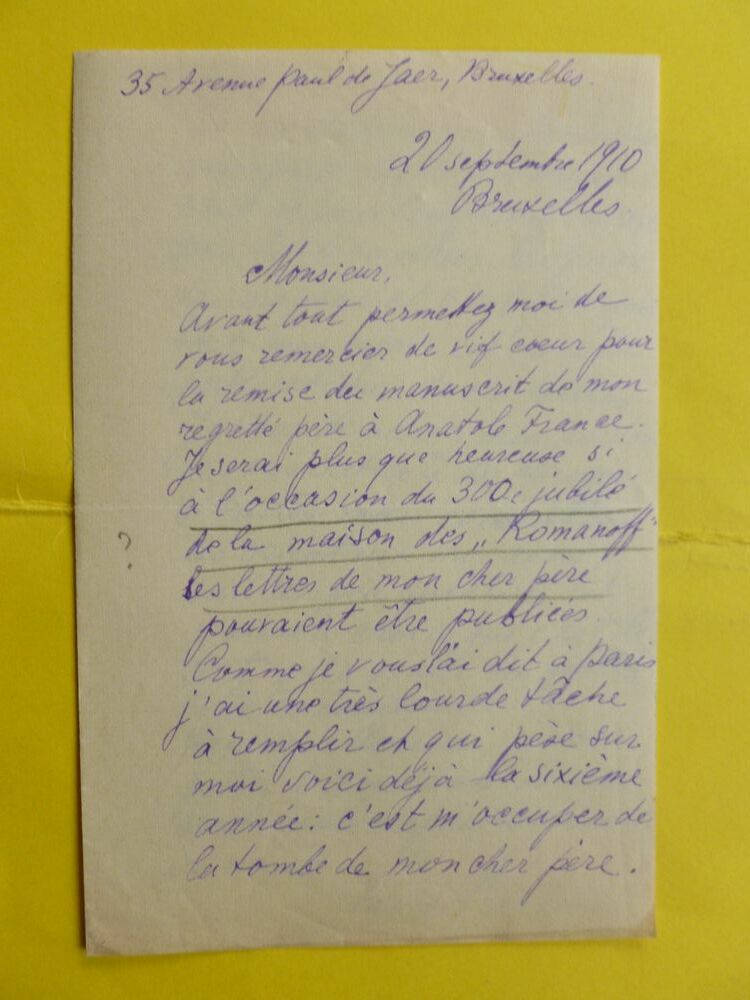 35 Avenue Paul de Jaer, Bruxelles.
20 septembre 1910
Bruxelles.
Monsieur,
Avant tout permettez moi de
vous remercier de vif coeur pour
la remise du manuscrit de mon
regretté père à Anatole France.
Je serai plus que heureuse si
à l'occasion du 300e jubilé
de la maison des „Romanoff"
?
les lettres de mon cher père
pouvaient être publiées.
Comme je vous l'ai dit à Paris
j'ai une très lourde tâche
à remplir et qui pèse sur
moi voici déjà la sixième
année: c'est m'occuper de
la tombe de mon cher père.